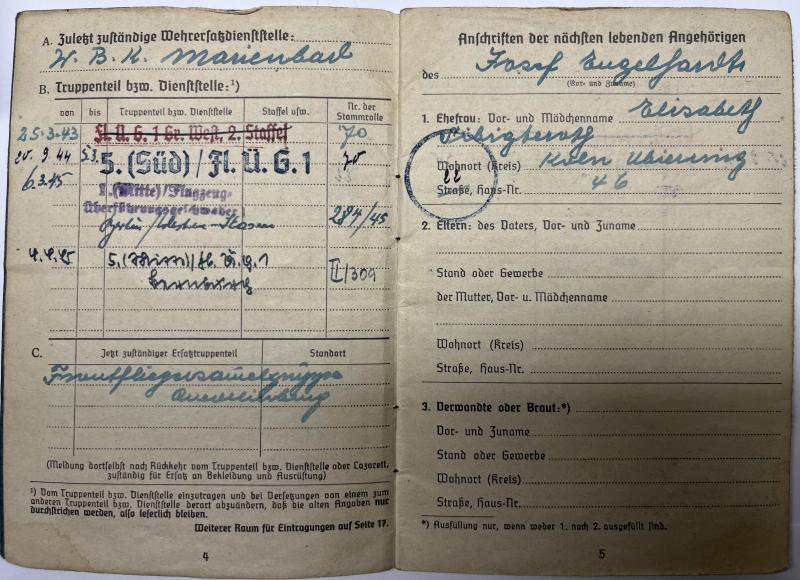 A. Zuletzt zuständige Wehrersatzdienststelle:
W. B. K. Marienbad
B. Truppenteil bzw. Dienststelle:¹)
von bis Truppenteil bzw. Dienststelle Staffel usw. Nr. der Stammrolle
25.3.43 Fl. Ü. G. 1 Gr. West, 2. Staffel 70
20.9.44 5.3. 5. (Süd) / Fl. Ü. G. 1 70
6.3.45 1. (Mitte)/Flugzeug-
überführungsgeschwader
284/45
4.4.45 5. /Fl. Ü. G. 1 II/309
Bernburg
C. Jetzt zuständiger Ersatztruppenteil Standort
Frontfliegersammelgruppe
Quedlinburg
(Meldung dortselbst nach Rückkehr vom Truppenteil bzw. Dienststelle oder Lazarett,
zuständig für Ersatz an Bekleidung und Ausrüstung)
¹) Vom Truppenteil bzw. Dienststelle einzutragen und bei Versetzungen von einem zum
anderen Truppenteil bzw. Dienststelle derart abzuändern, daß die alten Angaben nur
durchstrichen werden, also leserlich bleiben.
Weiterer Raum für Eintragungen auf Seite 17.
4
Anschriften der nächsten lebenden Angehörigen
des Josef Engelhardt
(Vor- und Zuname)
1. Ehefrau: Vor- und Mädchenname Elisabeth
Wohnort (Kreis) Köln Ubierring
22
Straße, Haus-Nr. 46
2. Eltern: des Vaters, Vor- und Zuname
Stand oder Gewerbe
der Mutter, Vor- u. Mädchenname
Wohnort (Kreis)
Straße, Haus-Nr.
3. Verwandte oder Braut:*)
Vor- und Zuname
Stand oder Gewerbe
Wohnort (Kreis)
Straße, Haus-Nr.
*) Ausfüllung nur, wenn weder 1. noch 2. ausgefüllt sind.
5